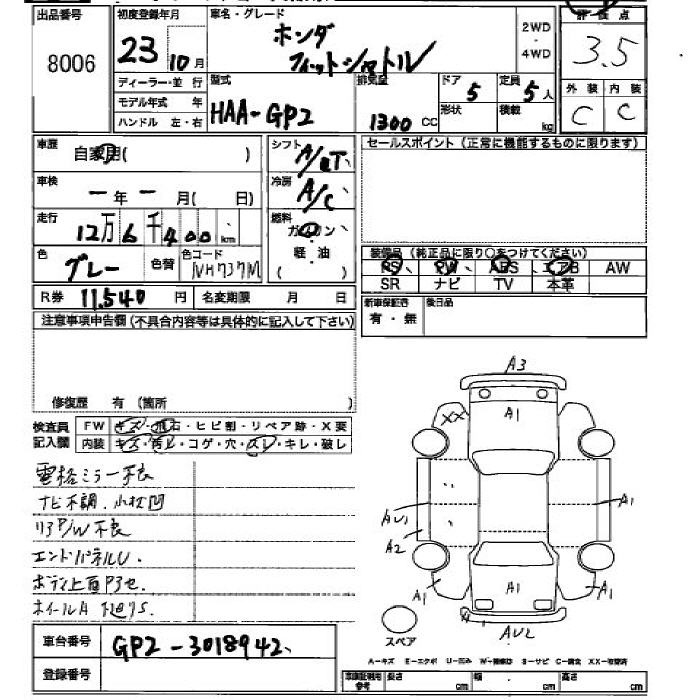 出品番号
8006
初度登録年月
23 10月
車名・グレード
ホンダ
フィットシャトル
2WD
・
4WD
評価点
3.5
外装 内装
C C
ディーラー・並行
モデル年式 年
ハンドル 左・右
型式
HAA-GP2
排気量
1300 CC
ドア
5
形状
定員
5人
積載
kg
車歴
自家用( )
シフト
A/
セールスポイント (正常に機能するものに限ります)
車検
ー年ー月( 日)
冷房
A/C
走行
12万6千400 km
燃料
ガソリン
軽・油
( )
色
グレー
色替
色コード
NH737M
装備品 (純正品に限り○をつけてください)
PS PW ABS エアB AW
SR ナビ TV 本革
R券 11,540 円 名変期限 月 日
新車保証書
有・無
後日品
注意事項申告欄 (不具合内容等は具体的に記入して下さい)
修復歴 有 (箇所 )
検査員
記入欄
FW キズ・飛石・ヒビ割・リペア跡・X要
内装 キズ・汚レ・コゲ・穴・スレ・キレ・破レ
電格ミラー不良
ナビ不調.小状凹
リアP/W不良
エンドパネルU.
ボディ上面P3セ.
ホイールA
A3
XX
A1
AU1
A2
A1
A1
A1
A1
A1
AU2
スペア
A−キズ E−エクボ U−凹み W−補修跡 S−サビ C−腐食 XX−交換済
車台番号 GP2-3018942
登録番号
参考
長さ cm 幅 cm 高さ cm